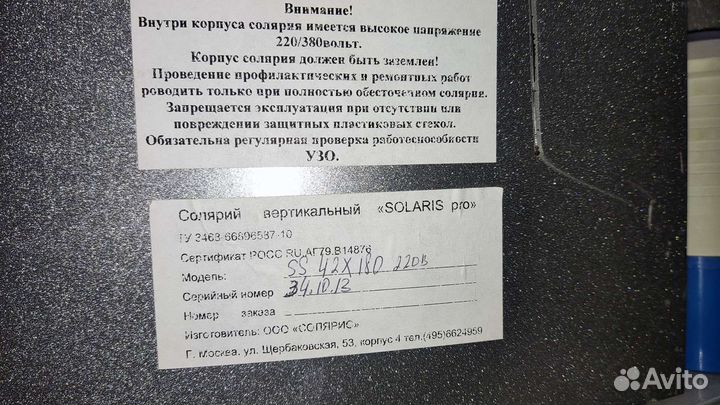 Внимание!
Внутри корпуса солярия имеется высокое напряжение
220/380вольт.
Корпус солярия должен быть заземлен!
Проведение профилактических и ремонтных работ
роводить только при полностью обесточенном солярии.
Запрещается эксплуатация при отсутствии или
повреждении защитных пластиковых стекол.
Обязательна регулярная проверка работоспособности
УЗО.
Солярий вертикальный «SOLARIS pro»
ТУ 3468-66896587-10
Сертификат РОСС RU.АГ79.В14876
Модель: SS 42X180 220В
Серийный номер 34.10.13
Номер заказа
Изготовитель: ООО «СОЛЯРИС»
Г. Москва, ул. Щербаковская, 53, корпус 4 тел.(495)6624959
Avito